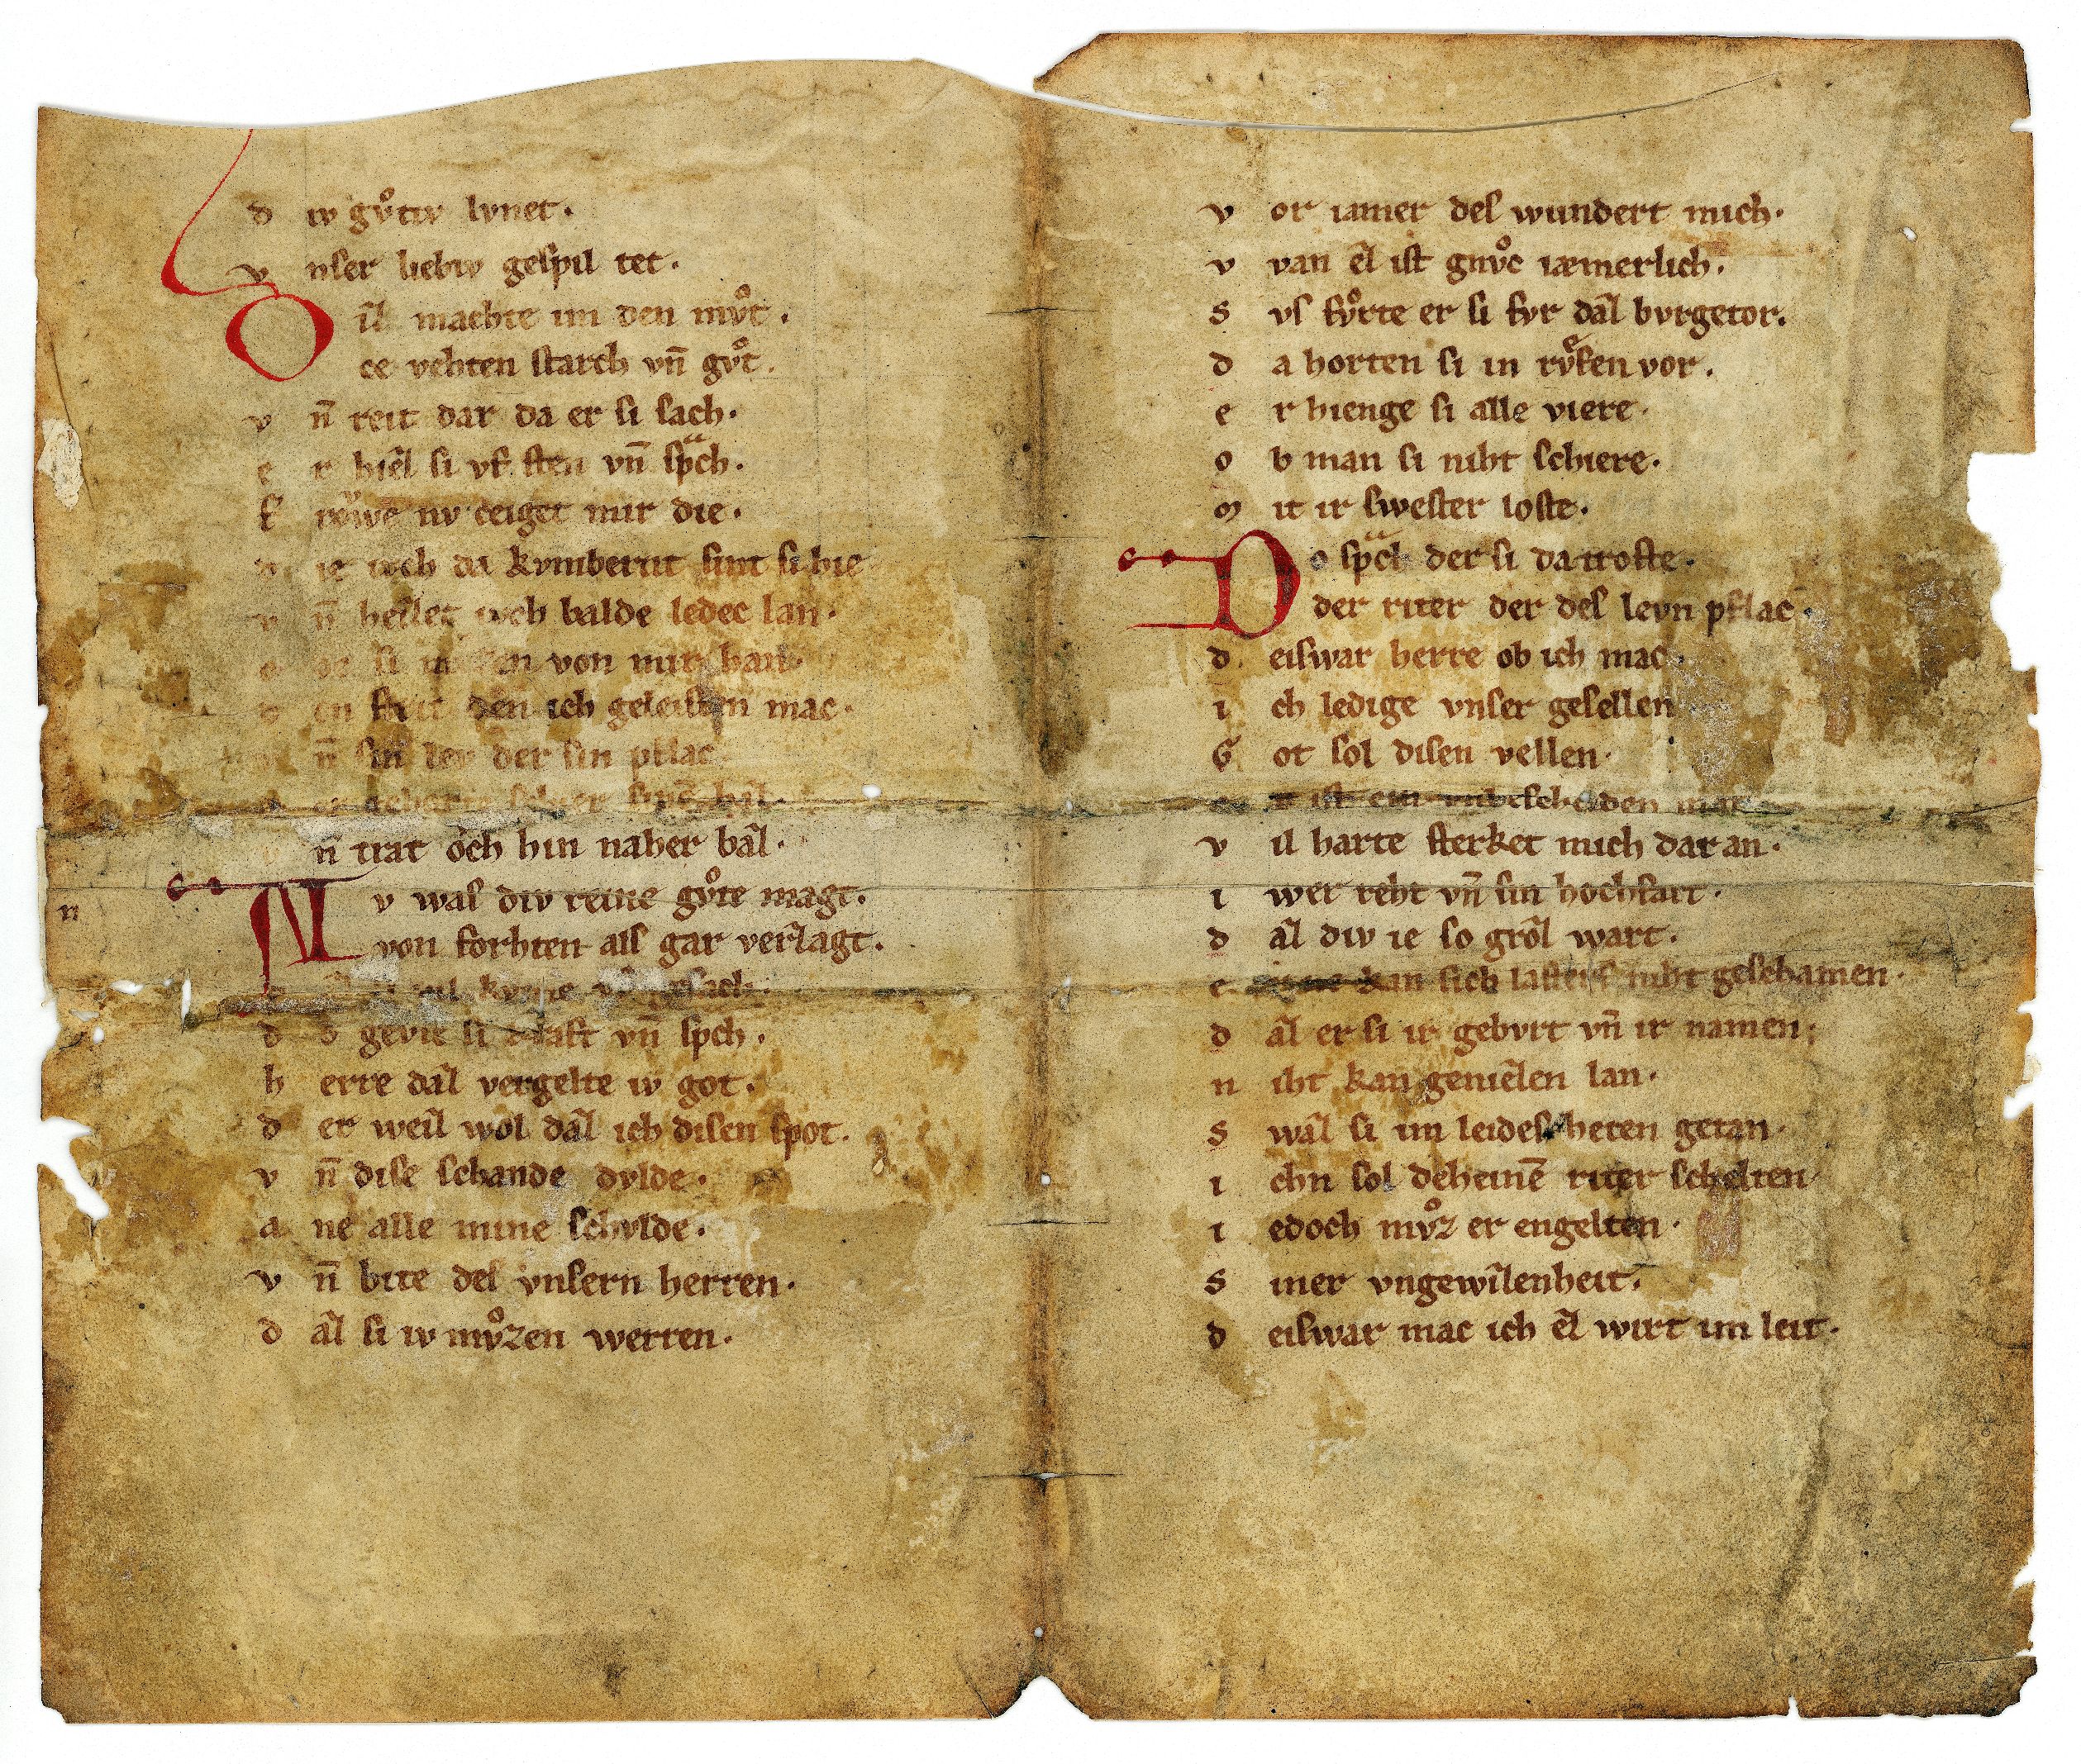 d iv gvͦtiv lvnet.
v nſer liebiv geſpil tet.
D iſ̃ machte im den mvͦt.
ce vehten ſtarch vn̄ gvͦt.
v n̄ reit dar da er ſi ſach.
e r hieſ̃ ſi vf ſten vn̄ ſpͣch.
f rvͦwe nv ceiget mir die.
d ie iveh da kvmbernt ſint ſi hie
v n̄ heiſ̃et iveh balde ledec lan.
ſi von mir han.
ſtrit den ich geleiſten mac.
n̄ ſin lev der ſin pflac
baſ̃.
n̄ trat oͮch hin naher baſ̃.
N v waſ div reine gvͦte magt.
von forhten alſ gar verſ̃agt.
d o gevie ſi craft vn̄ ſpch.
h erre daſ̃ vergelte iv got.
d er weiſ̃ wol daſ̃ ich diſen ſpot.
v n̄ diſe ſchande dvlde.
a ne alle mine ſchvlde.
v n̄ bite deſ vnſern herren.
d aſ̃ ſi iv mvͦzen werren.
n
v or iamer deſ wundert mich.
v van eſ̃ iſt gnvͦc iæmerlich.
S vſ fvͦrte er ſi fvr daſ̃ bvrgetor.
d a horten ſi in rvͤfen vor.
e r hienge ſi alle viere.
o b man ſi niht ſchiere.
m it ir ſweſter loſte.
D o ſpͣch der ſi da troſte.
der riter der deſ levn pflac.
d eiſwar herre ob ich mac.
i ch ledige vnſer geſellen
G ot ſol diſen vellen.
e r iſt ein vnbeſcheiden man
v il harte ſterket mich dar an.
i wer reht vn̄ ſin hochfart.
d aſ̃ div ie ſo groſ̃ wart.
e rne kan ſich laſterſ niht geſchamen.
d aſ̃ er ſi ir gebvrt vn̄ ir namen.
n iht kan genieſ̃en lan.
S waſ̃ ſi im leideſ heten getan.
i chn ſol deheinē riter ſchelten
i edoch mvͦz er engelten.
S iner vngewiſ̃enheit.
d eiſwar mac ich eſ̃ wirt im leit.